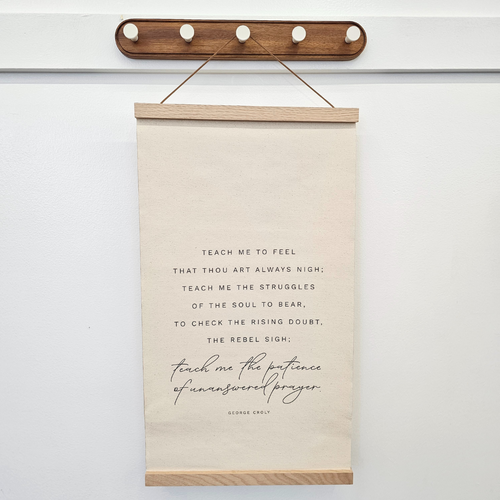 TEACH ME TO FEEL
THAT THOU ART ALWAYS NIGH;
TEACH ME THE STRUGGLES
OF THE SOUL TO BEAR,
TO CHECK THE RISING DOUBT,
THE REBEL SIGH;
teach me the patience
of unanswered prayer.
GEORGE CROLY